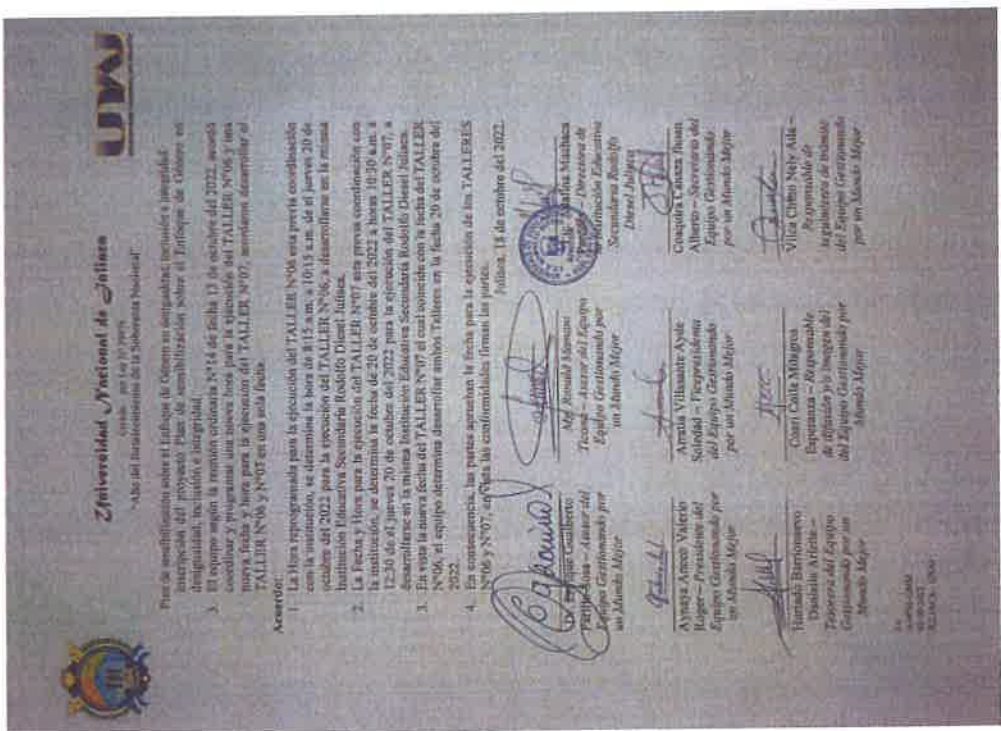 Universidad Nacional de Juliaca
UNAJ
"Año del Fortalecimiento de la Soberanía Nacional"
Plan de sensibilización sobre el Enfoque de Género en desigualdad, inclusión e integridad
inscripción del proyecto Plan de sensibilización sobre el Enfoque de Género en
desigualdad, inclusión e integridad.
3. El equipo según la reunión ordinaria N°14 de fecha 13 de octubre del 2022 acordó
coordinar y programar una nueva hora para la ejecución del TALLER N°06 y una
nueva fecha y hora para la ejecución del TALLER N°07, acordamos desarrollar el
TALLER N°06 y N°07 en una sola fecha.
Acuerdo:
1. La Hora reprogramada para la ejecución del TALLER N°06 esta previa coordinación
con la institución, se determina la hora de 8:15 a.m. a 10:15 a.m. de el jueves 20 de
octubre del 2022 para la ejecución del TALLER N°06, a desarrollarse en la misma
Institución Educativa Secundaria Rodolfo Diesel Juliaca.
2. La Fecha y Hora para la ejecución del TALLER N°07 esta previa coordinación con
la institución, se determina la fecha de 20 de octubre del 2022 a horas 10:30 a.m. a
12:30 de el jueves 20 de octubre del 2022 para la ejecución del TALLER N°07, a
desarrollarse en la misma Institución Educativa Secundaria Rodolfo Diesel Juliaca.
3. En vista la nueva fecha del TALLER N°07 el cual coincide con la fecha del TALLER
N°06, el equipo determina desarrollar ambos Talleres en la fecha 20 de octubre del
2022.
4. En consecuencia, las partes aprueban la fecha para la ejecución de los TALLERES
N°06 y N°07, en vista las conformidades firman las partes.
Juliaca, 18 de octubre del 2022.
Gualberto
– Asesor del
Equipo Gestionando por
un Mundo Mejor
Mgr. Ronald Mamani
Ticona – Asesor del Equipo
Gestionando por
un Mundo Mejor
Machaca
– Directora de
Institución Educativa
Secundaria Rodolfo
Diesel Juliaca
Aymaya Ancco Valerio
Roger – Presidente del
Equipo Gestionando por
un Mundo Mejor
Arratia Villasante Ayde
Soledad – Vicepresidenta
del Equipo Gestionando
por un Mundo Mejor
Coaquira Canaza Jhoan
Alberto – Secretario del
Equipo Gestionando
por un Mundo Mejor
Huanado Barrionuevo
– Tesorera del Equipo
Gestionando por un
Mundo Mejor
Coari Caila Milagros
Esperanza – Responsable
de difusión y/o imagen del
del Equipo Gestionando por
un Mundo Mejor
Vilca Cutho Nely Ada –
Responsable de
seguimiento de trámite
del Equipo Gestionando
por un Mundo Mejor